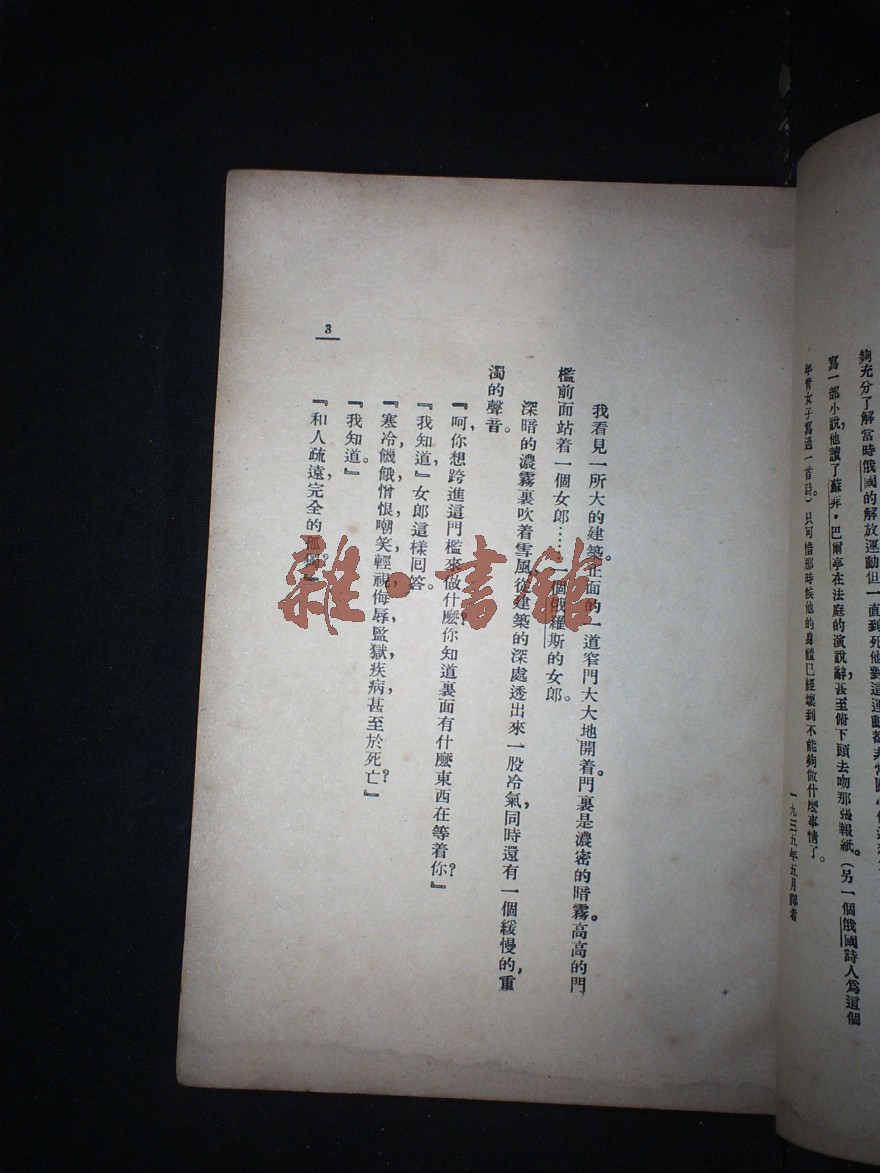 夠充分了解當時俄國的解放運動但一直到死他對這運動都非常關心
寫一部小說，他讀了蘇菲·巴爾亭在法庭的演說辭，甚至俯下頭去吻那張報紙。（另一個俄國詩人爲這個
年青女子寫過一首詩。）只可惜那時候他的身體已經壞到不能夠做什麼事情了。
一九三五年五月譯者
我看見一所大的建築。正面的一道窄門大大地開着。門裏是濃密的暗霧。高高的門
檻前面站着一個女郎……一個俄羅斯的女郎。
深暗的濃霧裏吹着雪風，從建築的深處透出來一股冷氣，同時還有一個緩慢的，重
濁的聲音。
『呵，你想跨進這門檻來做什麼？你知道裏面有什麼東西在等着你？』
『我知道，』女郎這樣囘答。
『寒冷，饑餓，憎恨，嘲笑，輕視，侮辱，監獄，疾病，甚至於死亡？』
『我知道。』
『和人疏遠，完全的孤獨？』
3
雜·書館